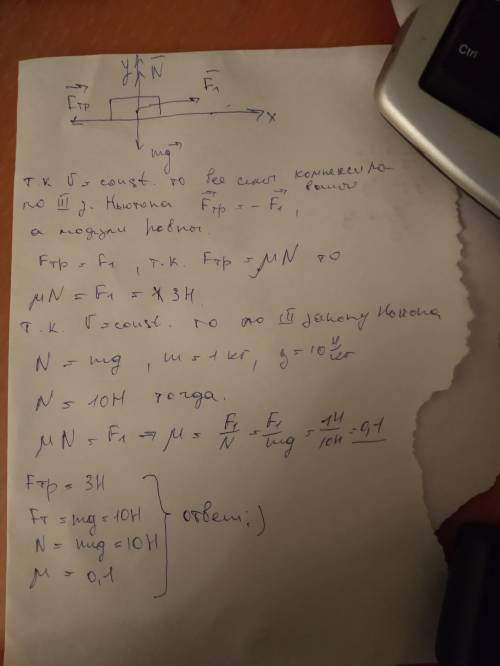 Ctrl
y N
Fтр F₁
x
mg
т.к V = const. то все силы компенсированы
по III з. Ньютона Fтр = - F₁,
а модули равны.
Fтр = F₁, т.к. Fтр = μN то
μN = F₁ = 3H.
т.к. V = const. то по III закону Ньютона
N = mg, m = 1 кг, g = 10 Н/кг
N = 10H тогда.
μN = F₁ ⇒ μ = F₁/N = F₁/mg = 1H/10H = 0,1
Fтр = 3H
Fт = mg = 10H
N = mg = 10H
μ = 0,1
ответ ;)